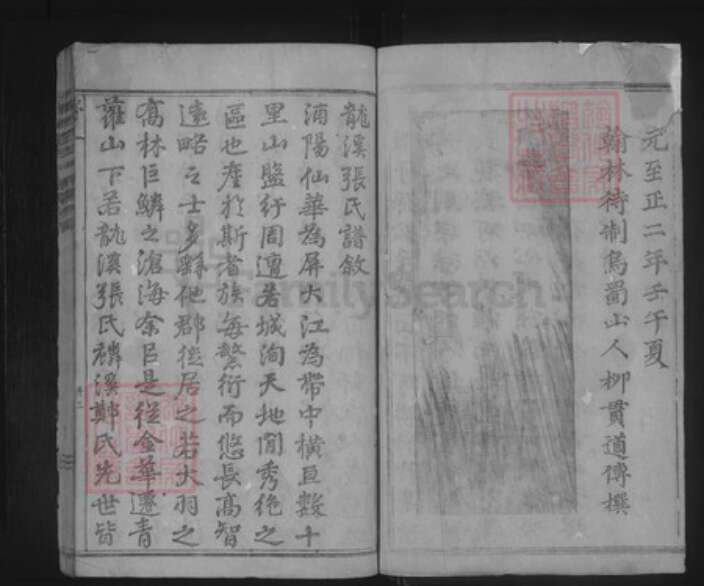 元至正二年壬午夏
翰林待制烏蜀山人柳貫道傳撰
龍溪張氏譜敘
浦陽仙華為屏大江為帶中橫亘數十
里山盤紆周遭若城洵天地間秀絶之
區也產於斯者族每繁衍而悠長高智
遠略之士多繇他郡徙居之若大羽之
喬林巨鱗之滄海余邑是從金華遷青
蘿山下若龍溪張氏麟溪鄭氏先世皆
FamilySearch